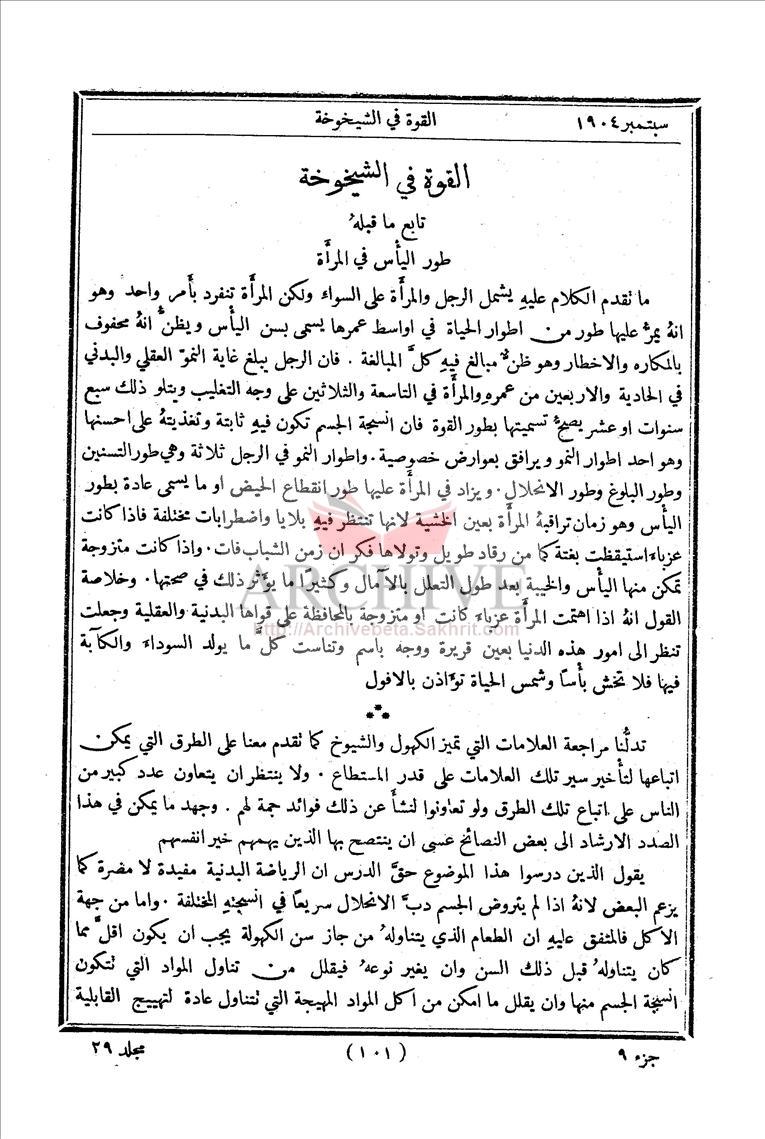 سبتمبر ١٩٠٤ القوة في الشيخوخة
القوة في الشيخوخة
تابع ما قبلهُ
طور اليأس في المرأة
ما تقدم الكلام عليهِ يشمل الرجل والمرأة على السواء ولكن المرأة تنفرد بأمر واحد وهو
انهُ يمرُّ عليها طور من اطوار الحياة في اواسط عمرها يسمى بسن اليأس ويظنُّ انهُ محفوف
بالمكاره والاخطار وهو ظنٌّ مبالغ فيهِ كلَّ المبالغة . فان الرجل يبلغ غاية النموّ العقلي والبدني
في الحادية والاربعين من عمرهِ والمرأة في التاسعة والثلاثين على وجه التغليب ويتلو ذلك سبع
سنوات او عشر يصحُّ تسميتها بطور القوة فان انسجة الجسم تكون فيهِ ثابتة وتغذيتهُ على احسنها
وهو احد اطوار النمو ويرافق بعوارض خصوصية . واطوار النمو في الرجل ثلاثة وهي طور التسنين
وطور البلوغ وطور الانحلال . ويزاد في المرأة عليها طور انقطاع الحيض او ما يسمى عادة بطور
اليأس وهو زمان تراقبهُ المرأة بعين الخشية لانها تنتظر فيهِ بلايا واضطرابات مختلفة فاذا كانت
عزباء استيقظت بغتة كما من رقاد طويل وتولاها فكر ان زمن الشباب فات . واذا كانت متزوجة
تمكن منها اليأس والخيبة بعد طول التعلل بالآمال وكثيرًا ما يؤثر ذلك في صحتها . وخلاصة
القول انهُ اذا اهتمت المرأة عزباء كانت او متزوجة بالمحافظة على قواها البدنية والعقلية وجعلت
تنظر الى امور هذه الدنيا بعين قريرة ووجه باسم وتناست كلَّ ما يولد السوداء والكآبة
فيها فلا تخش بأسًا وشمس الحياة تؤاذن بالافول
ARCHIVE
http://Archivebeta.Sakhrit.com
تدلُّنا مراجعة العلامات التي تميز الكهول والشيوخ كما تقدم معنا على الطرق التي يمكن
اتباعها لتأخير سير تلك العلامات على قدر المستطاع . ولا ينتظر ان يتعاون عدد كبير من
الناس على اتباع تلك الطرق ولو تعاونوا لنشأ عن ذلك فوائد جمة لهم . وجهد ما يمكن في هذا
الصدد الارشاد الى بعض النصائح عسى ان ينتصح بها الذين يهمهم خير انفسهم
يقول الذين درسوا هذا الموضوع حقَّ الدرس ان الرياضة البدنية مفيدة لا مضرة كما
يزعم البعض لانهُ اذا لم يتروض الجسم دبَّ الانحلال سريعًا في انسجتهِ المختلفة . واما من جهة
الاكل فالمتفق عليهِ ان الطعام الذي يتناولهُ من جاز سن الكهولة يجب ان يكون اقلَّ مما
كان يتناولهُ قبل ذلك السن وان يغير نوعهُ فيقلل من تناول المواد التي تتكون
انسجة الجسم منها وان يقلل ما امكن من اكل المواد المهيجة التي تتناول عادة لتهييج القابلية
جزء ٩ (١٠١) مجلد ٢٩